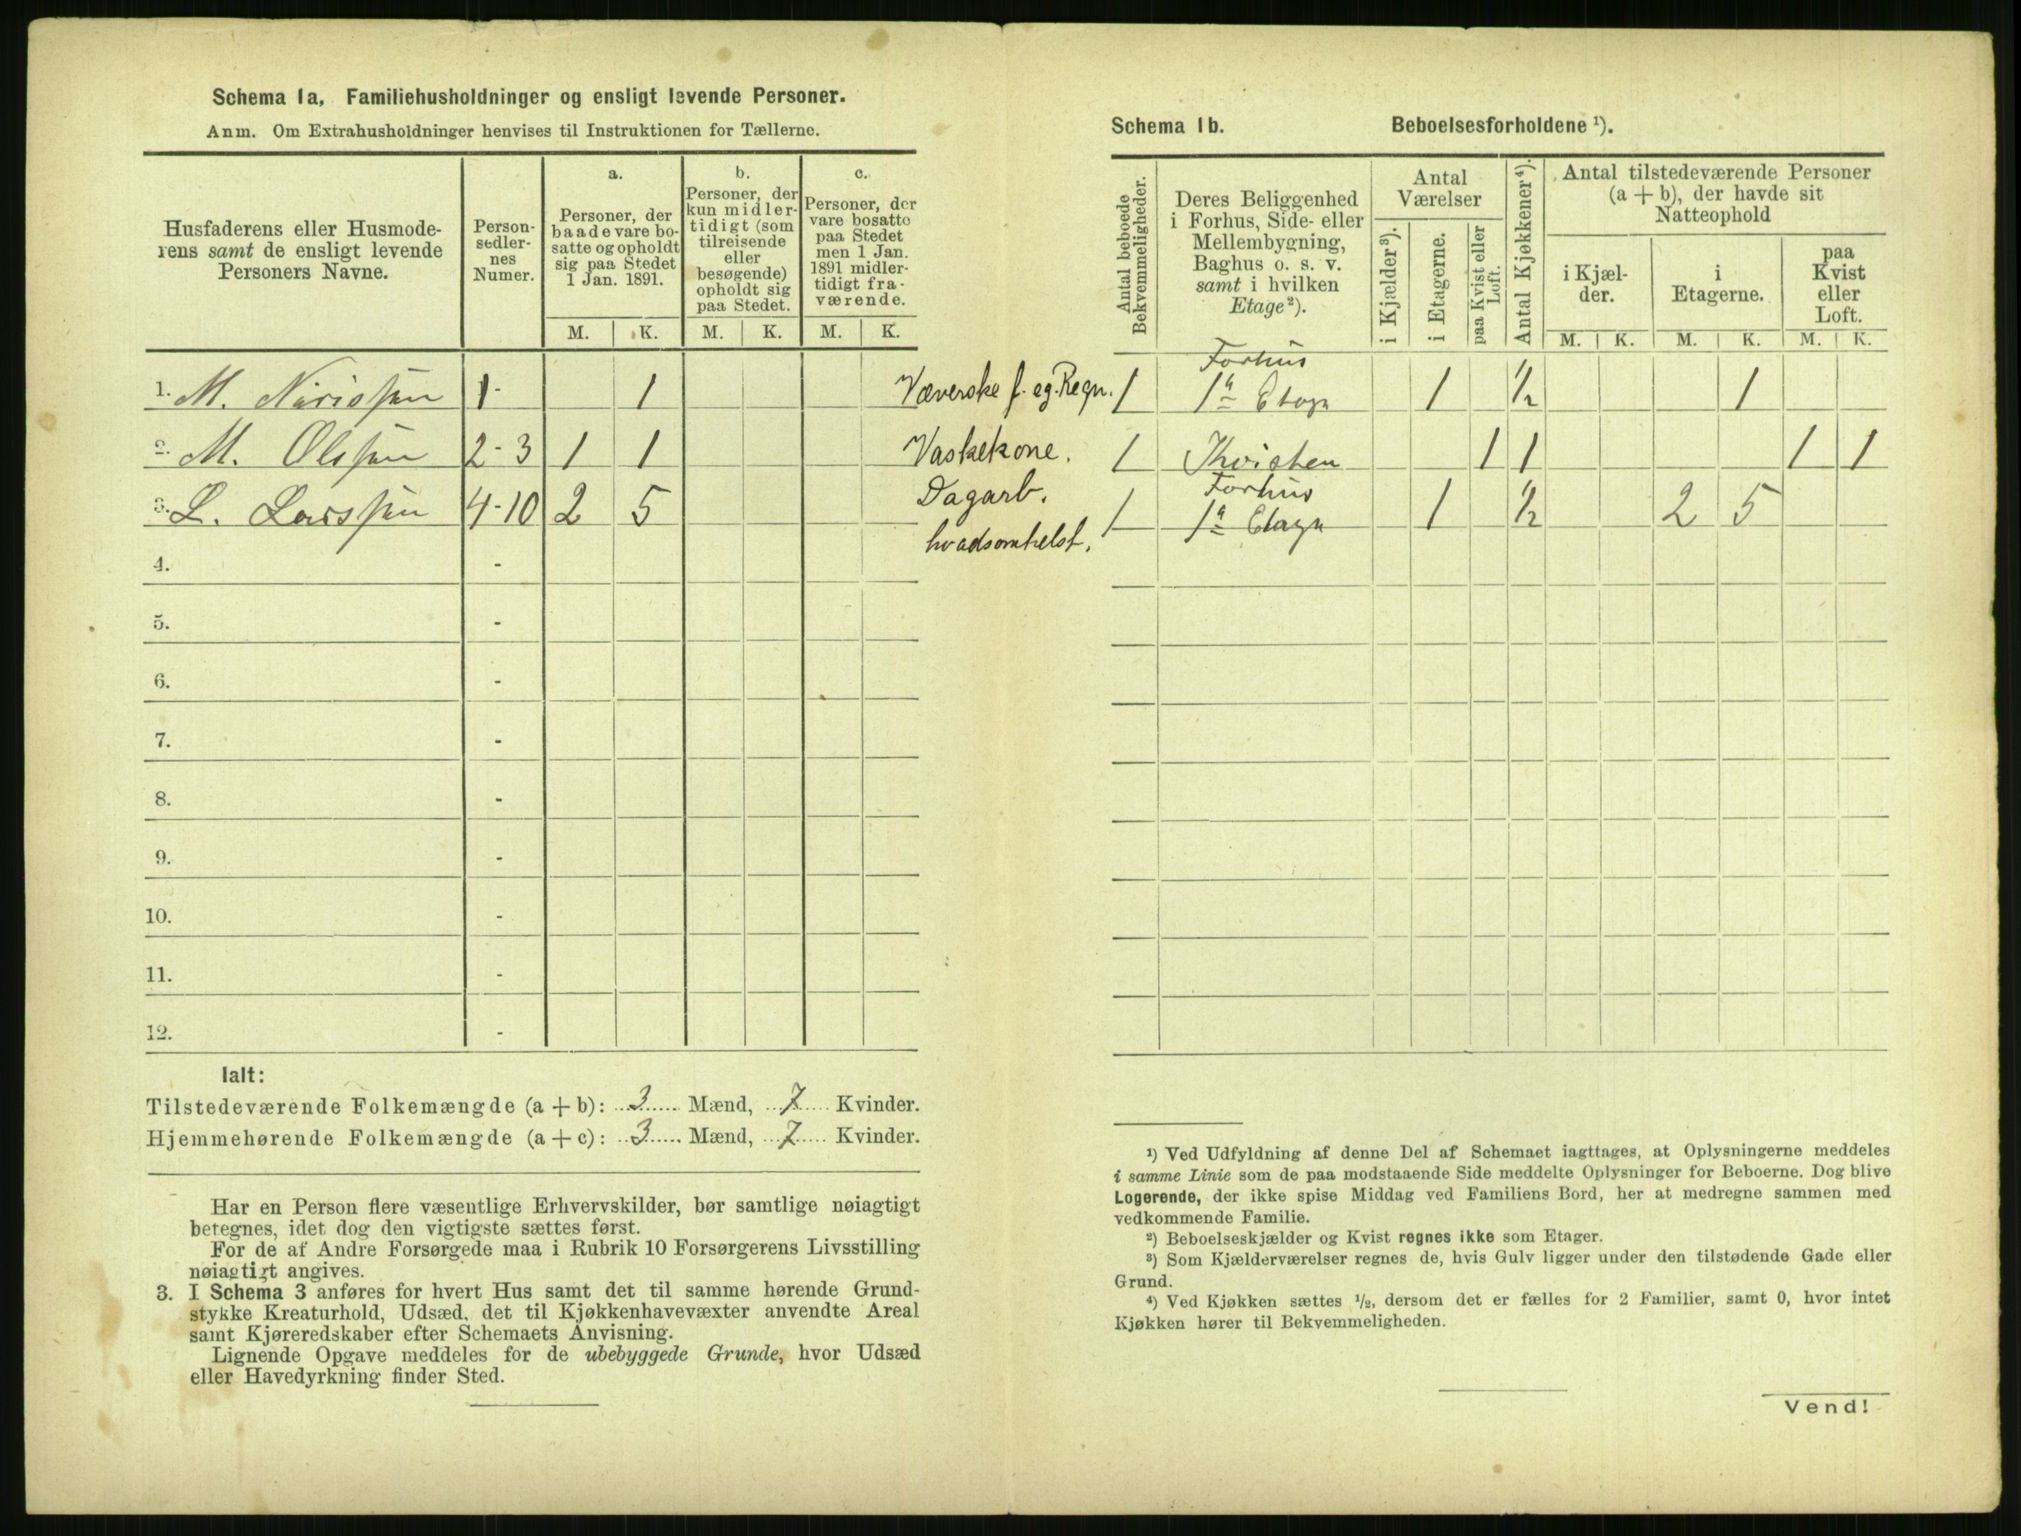 Schema 1a, Familiehusholdninger og ensligt levende Personer.
Anm. Om Extrahusholdninger henvises til Instruktionen for Tællerne.
Husfaderens eller Husmode-
rens samt de ensligt levende
Personers Navne.
Person-
sedler-
nes
Numer.
a.
Personer, der
baade vare bo-
satte og opholdt
sig paa Stedet
1 Jan. 1891.
b.
Personer, der
kun midler-
tidigt (som
tilreisende
eller
besøgende)
opholdt sig
paa Stedet.
c.
Personer, der
vare bosatte
paa Stedet
men 1 Jan.
1891 midler-
tidigt fra-
værende.
M. K. M. K. M. K.
1. M. 1 - 1 Væverske f. eg. Regn.
2. M. Olsson 2 - 3 1 1 Vaskekone.
3. L. Larsson 4 - 10 2 5 Dagarb.
hvadsomhelst.
4. -
5. -
6. -
7. -
8. -
9. -
10. -
11. -
12. -
Ialt:
Tilstedeværende Folkemængde (a + b): 3 Mænd, 7 Kvinder.
Hjemmehørende Folkemængde (a + c): 3 Mænd, 7 Kvinder.
Har en Person flere væsentlige Erhvervskilder, bør samtlige nøiagtigt
betegnes, idet dog den vigtigste sættes først.
For de af Andre Forsørgede maa i Rubrik 10 Forsørgerens Livsstilling
nøiagtigt angives.
3. I Schema 3 anføres for hvert Hus samt det til samme hørende Grund-
stykke Kreaturhold, Udsæd, det til Kjøkkenhavevæxter anvendte Areal
samt Kjøreredskaber efter Schemaets Anvisning.
Lignende Opgave meddeles for de ubebyggede Grunde, hvor Udsæd
eller Havedyrkning finder Sted.
Schema 1b. Beboelsesforholdene ¹).
Antal beboede
Bekvemmeligheder.
Deres Beliggenhed
i Forhus, Side- eller
Mellembygning,
Baghus o. s. v.
samt i hvilken
Etage²).
Antal
Værelser
i Kjælder³).
i Etagerne.
paa Kvist eller
Loft.
Antal Kjøkkener⁴).
Antal tilstedeværende Personer
(a + b), der havde sit
Natteophold
i Kjæl-
der.
i
Etagerne.
paa
Kvist
eller
Loft.
M. K. M. K. M. K.
Forhus
1 1ª Etage 1 ½ 1
1 Kvisten 1 1 1 1
Forhus
1 1ª Etage 1 ½ 2 5
¹) Ved Udfyldning af denne Del af Schemaet iagttages, at Oplysningerne meddeles
i samme Linie som de paa modstaaende Side meddelte Oplysninger for Beboerne. Dog blive
Logerende, der ikke spise Middag ved Familiens Bord, her at medregne sammen med
vedkommende Familie.
²) Beboelseskjælder og Kvist regnes ikke som Etager.
³) Som Kjælderværelser regnes de, hvis Gulv ligger under den tilstødende Gade eller
Grund.
⁴) Ved Kjøkken sættes ½, dersom det er fælles for 2 Familier, samt 0, hvor intet
Kjøkken hører til Bekvemmeligheden.
Vend!